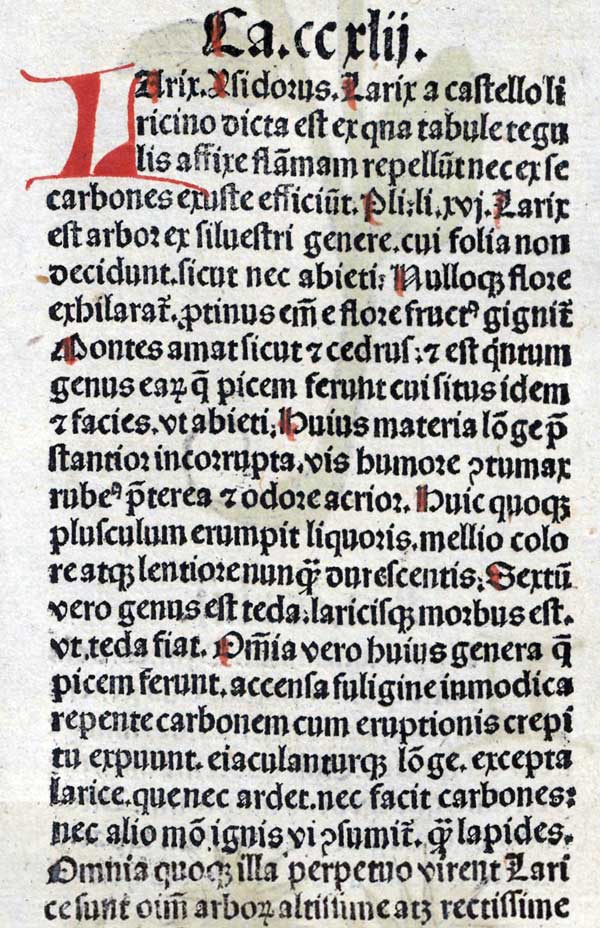 Ca.ccxlij.
LArix. Ysidorus. Larix a castello li
ricino dicta est ex qua tabule tegu
lis affixe flāmam repellūt nec ex se
carbones exuste efficiūt. Pli.li.xvj. Larix
est arbor ex siluestri genere. cui folia non
decidunt. sicut nec abieti: Nulloqꝫ flore
exhilarat̄. ꝓtinus em̄ e flore fructꝰ gignit̄
Montes amat sicut ⁊ cedrus: ⁊ est q̇ntum
genus eaꝝ q̄ picem ferunt cui situs idem
⁊ facies. vt abieti: Huius materia lōge p̄
stantior incorrupta. vis humore ꝯtumax
rubeꝰ p̄terea ⁊ odore acrior. Huic quoqꝫ
plusculum erumpit liquoris. mellio colo
re atqꝫ lentiore nunqͣꝫ durescentis: Sextū
vero genus est teda: laricisqꝫ morbus est.
vt. teda fiat. Om̄ia vero huius genera q̄
picem ferunt. accensa fuligine inmodica
repente carbonem cum eruptionis crepi
tu expuunt. eiaculanturqꝫ lōge. excepta
larice. que nec ardet. nec facit carbones:
nec alio mō ignis vi ꝯsumit̄. qͣꝫ lapides.
Omnia quoqꝫ illa perpetuo virent Lari
ce sunt oim̄ arboꝝ altissime atqꝫ rectissime